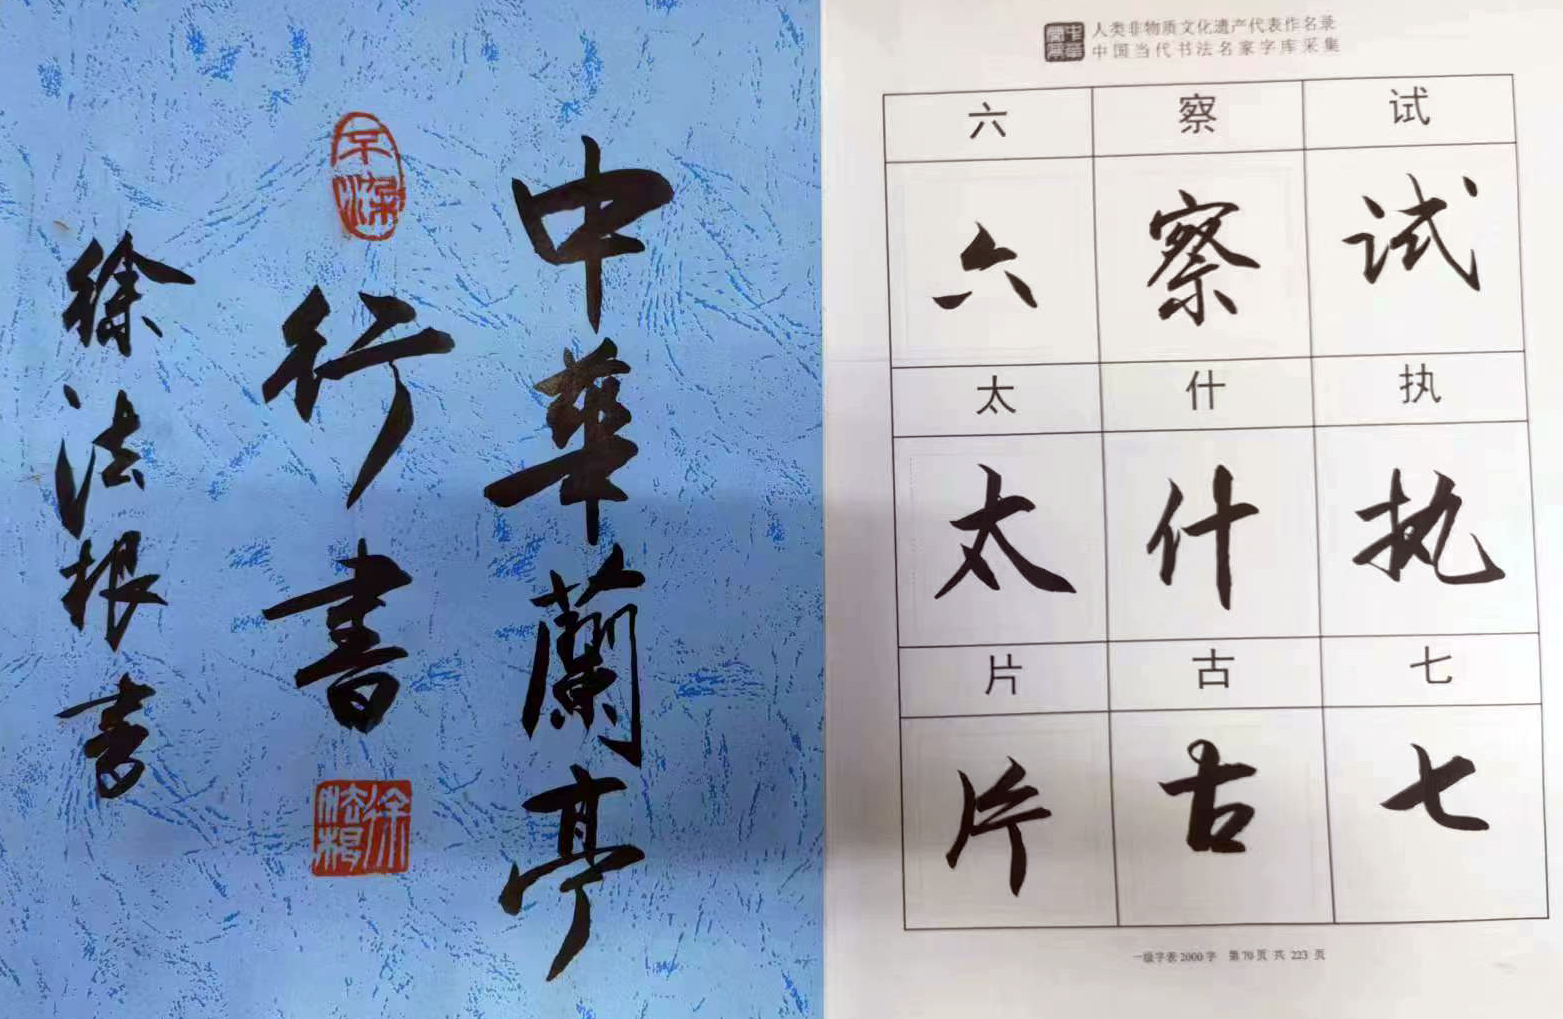 中華蘭亭
行書
徐法根书
徐法根
人类非物质文化遗产代表作名录
中国当代书法名家字库采集
六 察 试
六 察 试
太 什 执
太 什 执
片 古 七
片 古 七
一级字表2000字 第70页 共 223 页